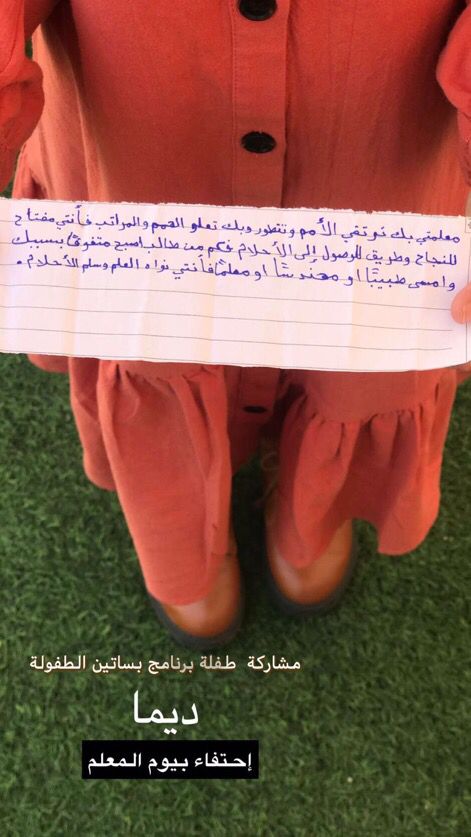 معلمتي بك ترتقي الأمم وتتطور وبك تعلو الهمم والمراتب فأنتي مفتاح
للنجاح وطريق للوصول إلى الأحلام فكم من طالب اصبح متفوقًا بسببك
وامسى طبيبًا او مهندسًا او معلمًا فأنتي نواه العلم وسلم الأحلام .
مشاركة طفلة برنامج بساتين الطفولة
ديما
إحتفاء بيوم المعلم